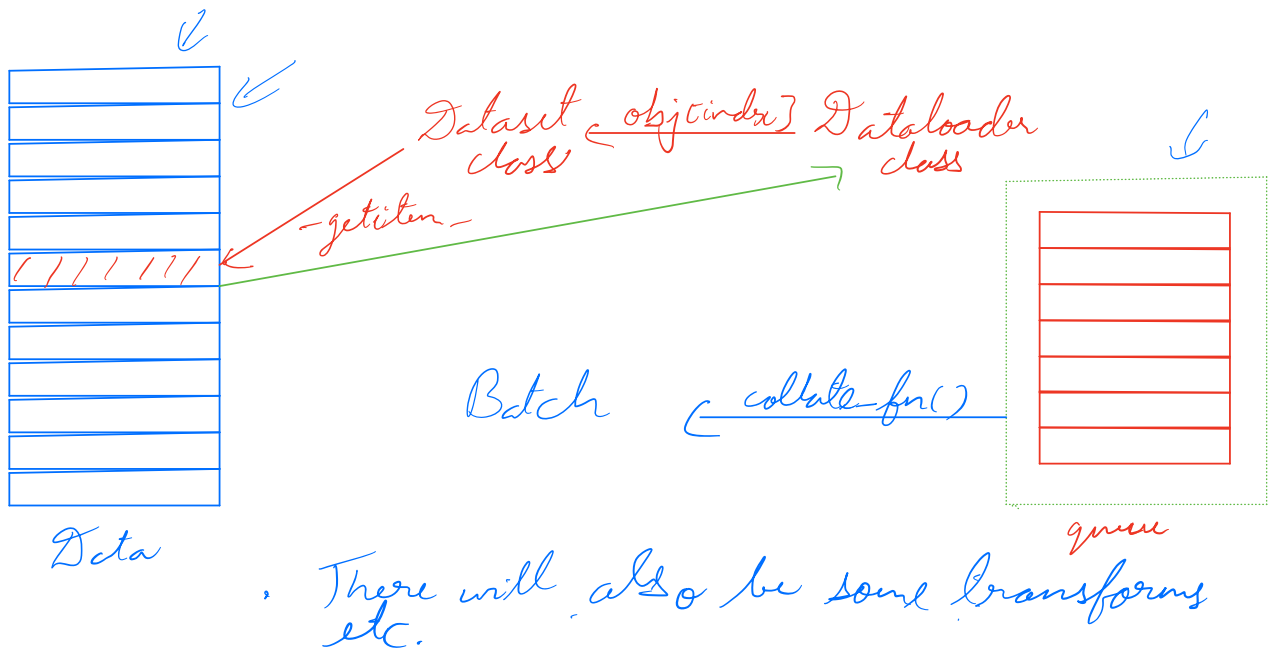 Dataset obj[indx] Dataloader
class class
-getitem-
Batch collate_fn()
Data
queue
. There will also be some transforms
etc.